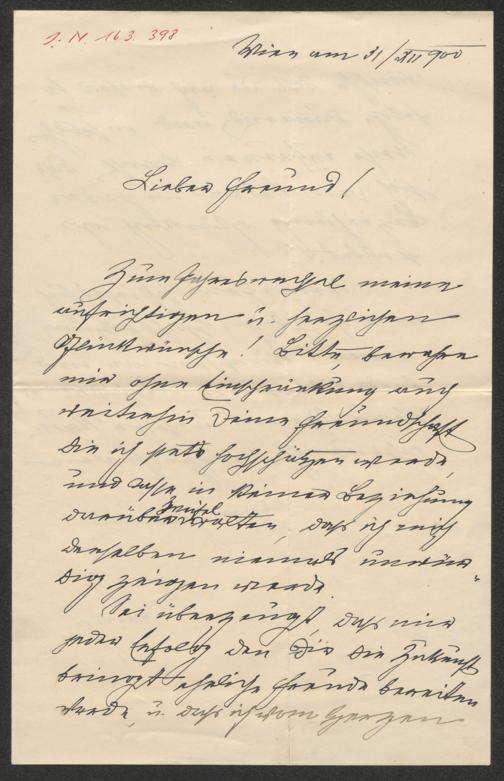 I. N. 163.398
Wien am 31/XII 900
Lieber Freund!
Zum Jahreswechsel meine
aufrichtigen u. herzlichen
Glückwünsche! Bitte, bewahre
mir ohne Einschränkung auch
weiterhin Deine Freundschaft
die ich stets hochschätzen werde,
und lasse in keiner Beziehung
darüber Zweifel walten, daß ich mich
derselben niemals unwür-
dig zeigen werde.
Sei überzeugt, daß mir
jeder Erfolg den Dir die Zukunft
bringt ehrliche Freude bereiten
werde, u. daß ich vom Herzen